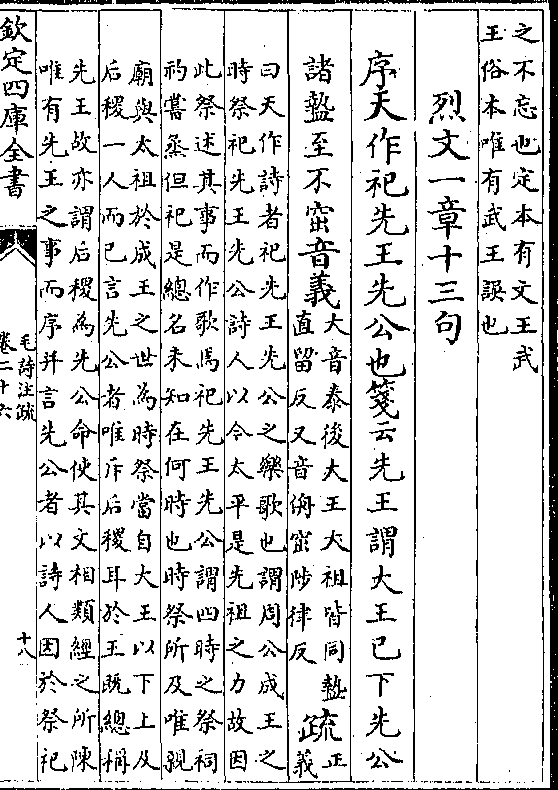 之不忘也定本有文王武
王俗本唯有武王誤也
烈文一章十三句
序天作祀先王先公也箋云先王謂大王已下先公
諸盩至不窋音義
大音泰後大王大祖皆同盩
直留反又音侜窋陟律反
疏
正
義
曰天作詩者祀先王先公之樂歌也謂周公成王之
時祭祀先王先公詩人以今太平是先祖之力故因
此祭述其事而作歌焉祀先王先公謂四時之祭祠
礿嘗烝但祀是總名未知在何時也時祭所及唯親
廟與太祖於成王之世為時祭當自大王以下上及
后稷一人而已言先公者唯斥后稷耳於王既總稱
先王故亦謂后稷為先公令使其文相類經之所陳
唯有先王之事而序并言先公者以詩人因於祭祀
欽定四庫全書
毛詩注疏
卷二十六
十八